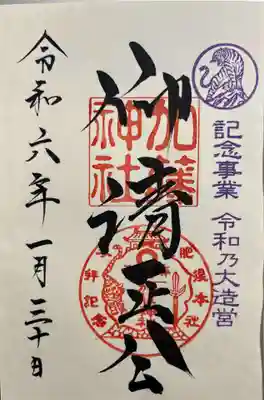 記念事業 令和乃大造営
加藤神社
清正公
肥後本社
参拝記念
令和六年一月三十日